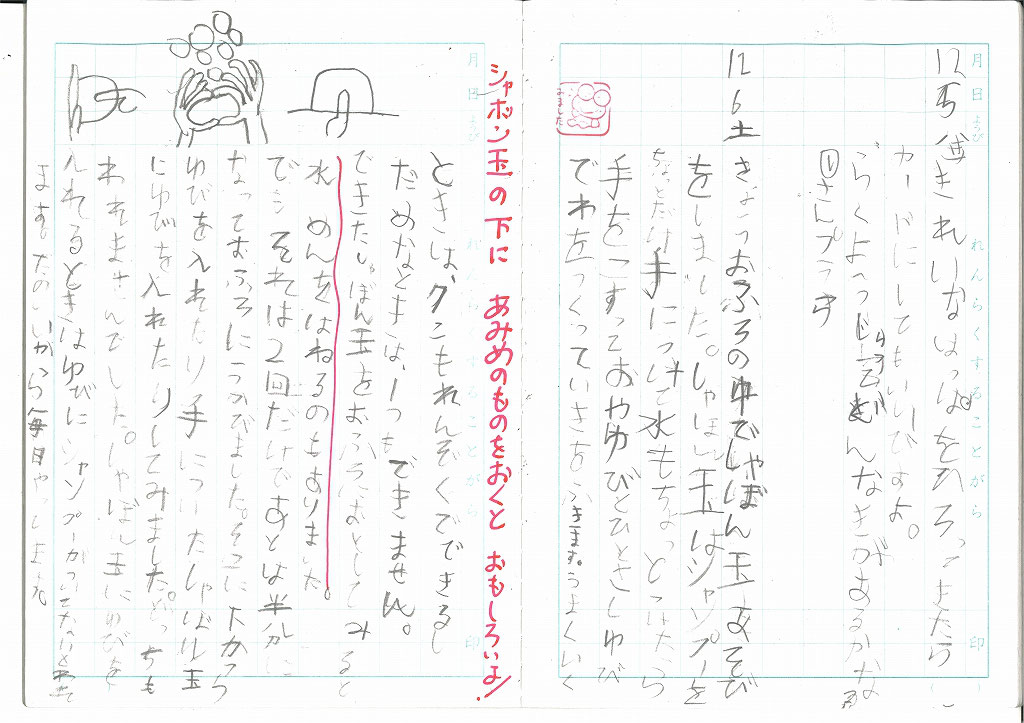 月 日 よう日 れんらくすることがら 印
12 5 金 きれいなはっぱをひろってきたら
カードにしてもいいですよ。
12 6 土 きょうおふろの中でしゃぼん玉あそび
をしました。しゃぼん玉はシャンプーを
ちょとだけ手につけて水もちょっとつけたら
手をこすっておやゆびとひとさしゆび
でわをつくっていきをふきます。うまくいく
みました
シャボン玉の下に あみめのものをおくと おもしろいよ!
月 日 よう日 れんらくすることがら 印
ときは、9こもれんぞくでできるし
だめなときは、1つもできません。
できたしゃぼん玉をおふろにおとしてみると
水めんをはねるのもありました。
でも それは2回だけであとは半分に
なっておふろにうかびました。そこに下から
ゆびを入れたり手につけたしゃぼん玉
にゆびを入れたりしてみました。どっちも
われませんでした。しゃぼん玉にゆびを
入れるときはゆびにシャンプーが
ます。たのしいから毎日やってます。